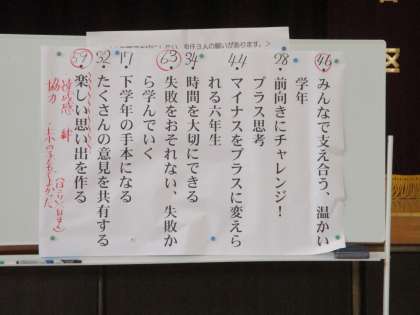 46
みんなで支え合う、温かい
学年
28
前向きにチャレンジ!
プラス思考
44
マイナスをプラスに変えら
れる六年生
34
時間を大切にできる
63
失敗をおそれない、失敗か
ら学んでいく
17
下学年の手本になる
32
たくさんの意見を共有する
59
楽しい思い出を作る
協力
絆